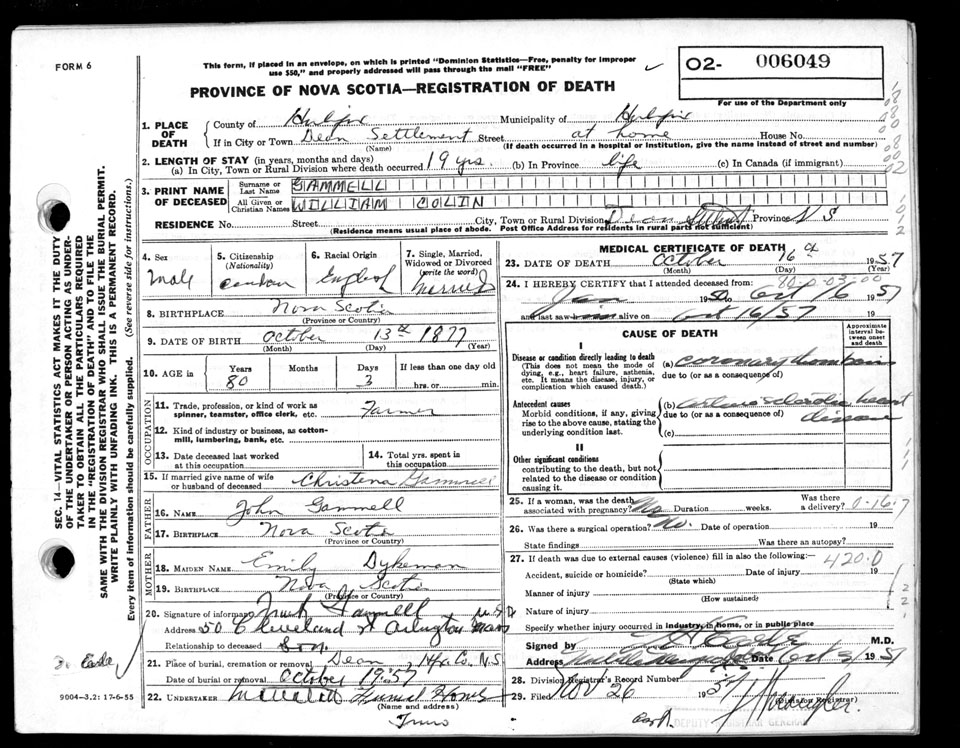 FORM 6
This form, if placed in an envelope, on which is printed "Dominion Statistics—Free, penalty for improper
use $50," and properly addressed will pass through the mail "FREE"
PROVINCE OF NOVA SCOTIA—REGISTRATION OF DEATH
O2- 006049
For use of the Department only
1. PLACE OF DEATH
County of Halifax Municipality of Halifax
If in City or Town Dean Settlement Street at home House No.
(Name) (If death occurred in a hospital or institution, give the name instead of street and number)
2. LENGTH OF STAY (in years, months and days)
(a) In City, Town or Rural Division where death occurred 19 yrs. (b) In Province life (c) In Canada (if immigrant)
3. PRINT NAME OF DECEASED
Surname or Last Name GAMMELL
All Given or Christian Names WILLIAM COLIN
RESIDENCE No. Street City, Town or Rural Division Dean Province N S
(Residence means usual place of abode. Post Office Address for residents in rural parts not sufficient)
4. Sex Male
5. Citizenship (Nationality)
6. Racial Origin English
7. Single, Married, Widowed or Divorced (write the word) Married
8. BIRTHPLACE Nova Scotia
(Province or Country)
9. DATE OF BIRTH October 13th 1877
(Month) (Day) (Year)
10. AGE in Years 80 Months Days 3 If less than one day old hrs. or min.
OCCUPATION
11. Trade, profession, or kind of work as spinner, teamster, office clerk, etc. Farmer
12. Kind of industry or business, as cotton-mill, lumbering, bank, etc.
13. Date deceased last worked at this occupation
14. Total yrs. spent in this occupation
15. If married give name of wife or husband of deceased Christena Gammell
FATHER
16. NAME John Gammell
17. BIRTHPLACE Nova Scotia
(Province or Country)
MOTHER
18. MAIDEN NAME Emily Dykeman
19. BIRTHPLACE Nova Scotia
(Province or Country)
20. Signature of informant Gammell
Address 50 Cleveland St Arlington Mass
Relationship to deceased Son
21. Place of burial, cremation or removal Dean Hfx Co. N.S
Date of burial or removal October 1957
22. UNDERTAKER Funeral Home
(Name and address)
Truro
MEDICAL CERTIFICATE OF DEATH
23. DATE OF DEATH October 16th 1957
(Month) (Day) (Year)
24. I HEREBY CERTIFY that I attended deceased from:
Jan 1950 to Oct 16 1957
and last saw him alive on Oct 16/57
CAUSE OF DEATH
Approximate interval between onset and death
I
Disease or condition directly leading to death
(This does not mean the mode of dying, e.g., heart failure, asthenia, etc. It means the disease, injury, or complication which caused death.
(a) coronary thrombosis
due to (or as a consequence of)
Antecedent causes
Morbid conditions, if any, giving rise to the above cause, stating the underlying condition last.
(b) heart disease
due to (or as a consequence of)
(c)
II
Other significant conditions
contributing to the death, but not related to the disease or condition causing it.
25. If a woman, was the death associated with pregnancy? No Duration weeks. Was there a delivery?
26. Was there a surgical operation? No. Date of operation 19
State findings Was there an autopsy?
27. If death was due to external causes (violence) fill in also the following:— 420.0
Accident, suicide or homicide? Date of injury 19
(State which)
Manner of injury
(How sustained)
Nature of injury
Specify whether injury occurred in industry, in home, or in public place
Signed by M.D.
Address Date Oct 1957
28. Division Registrar's Record Number
29. Filed Nov 26 1957
(Division Registrar)
DEPUTY REGISTRAR GENERAL
9004—3.2: 17-6-55
SEC. 14—VITAL STATISTICS ACT MAKES IT THE DUTY
OF THE UNDERTAKER OR PERSON ACTING AS UNDER-
TAKER TO OBTAIN ALL THE PARTICULARS REQUIRED
IN THE "REGISTRATION OF DEATH" AND TO FILE THE
SAME WITH THE DIVISION REGISTRAR WHO SHALL ISSUE THE BURIAL PERMIT.
WRITE PLAINLY WITH UNFADING INK. THIS IS A PERMANENT RECORD.
Every item of information should be carefully supplied. (See reverse side for instructions.)